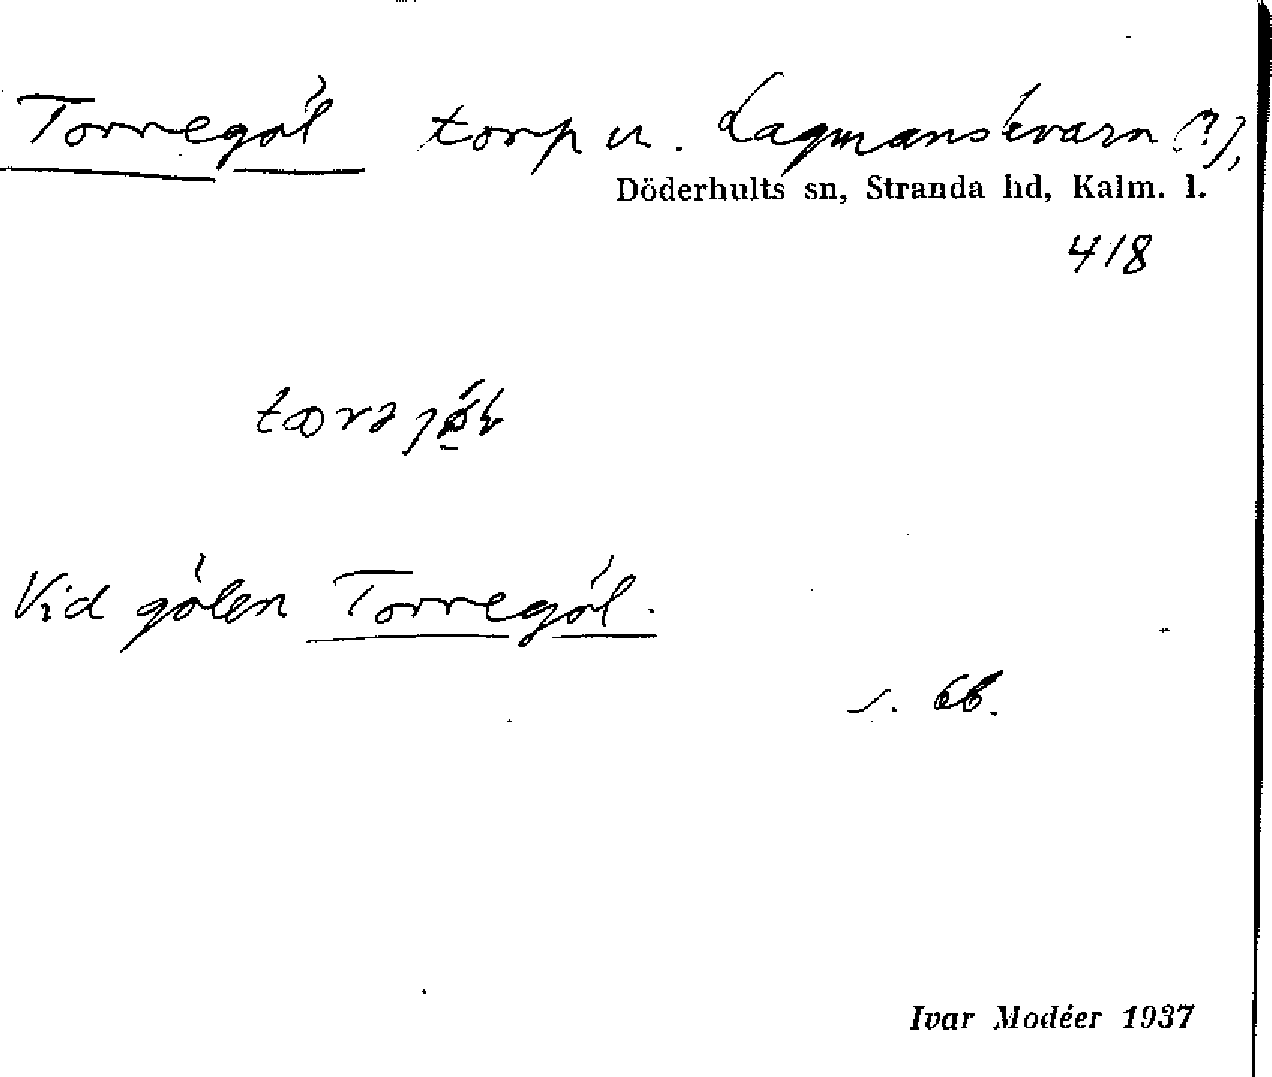 Torregöl torp u. Lagmanskvarn (?),
Döderhults sn, Stranda hd, Kalm. l.
418
Vid gölen Torregöl.
s.
Ivar Modéer 1937